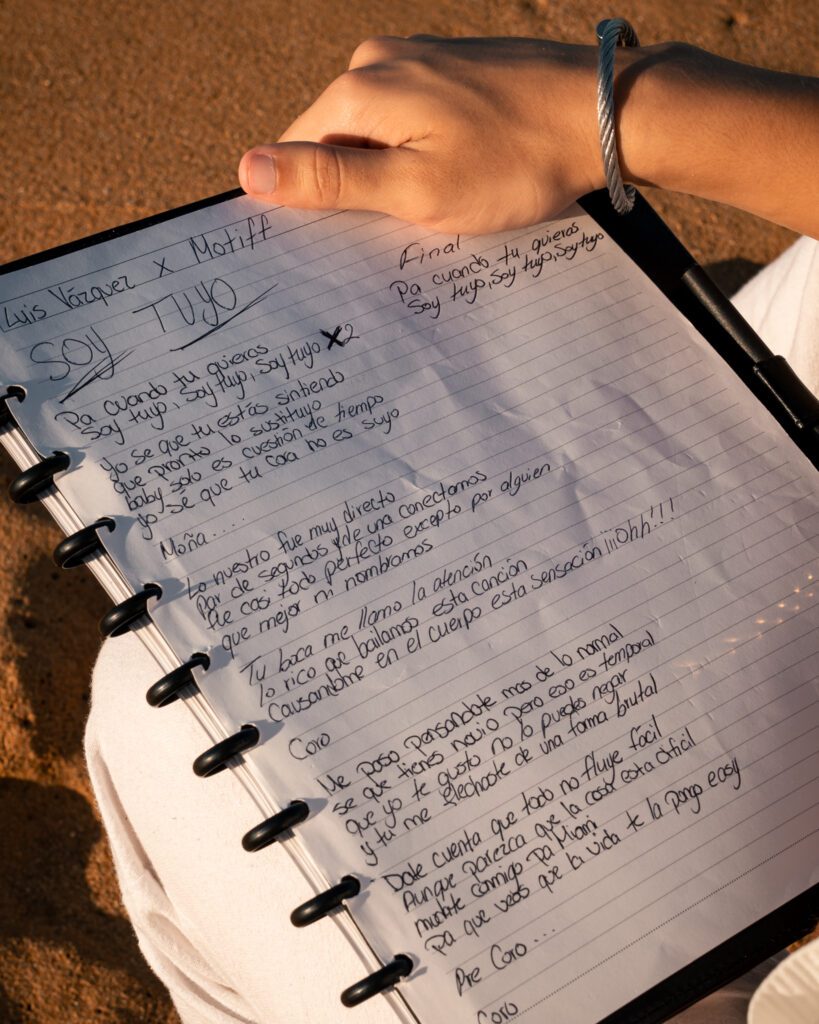 Luis Vázquez x Motiff
SOY TUYO
Pa cuando tu quieras
Soy tuyo, Soy tuyo, Soy tuyo X2
Yo se que tu estás sintiendo
que pronto lo sustituyo
baby solo es cuestión de tiempo
yo se que tu cora no es suyo
Moña.....
Lo nuestro fue muy directo
Par de segundos y de una conectamos
Fue casi todo perfecto excepto por alguien
que mejor ni nombramos
Tu boca me llamo la atención
lo rico que bailamos esta canción
Causandome en el cuerpo esta sensación ¡¡¡Ohh!!!
Coro
Me paso pensandote mas de lo normal
se que tienes novio pero eso es temporal
que yo te gusto no lo puedes negar
y tu me flechaste de una forma brutal
Date cuenta que todo no fluye facil
Aunque parezca que la cosa esta dificil
mudate conmigo pa Miami
Pa que veas que la vida te la pongo easy
Pre Coro ...
Coro
Final
Pa cuando tu quieras
Soy tuyo, Soy tuyo, Soy tuyo